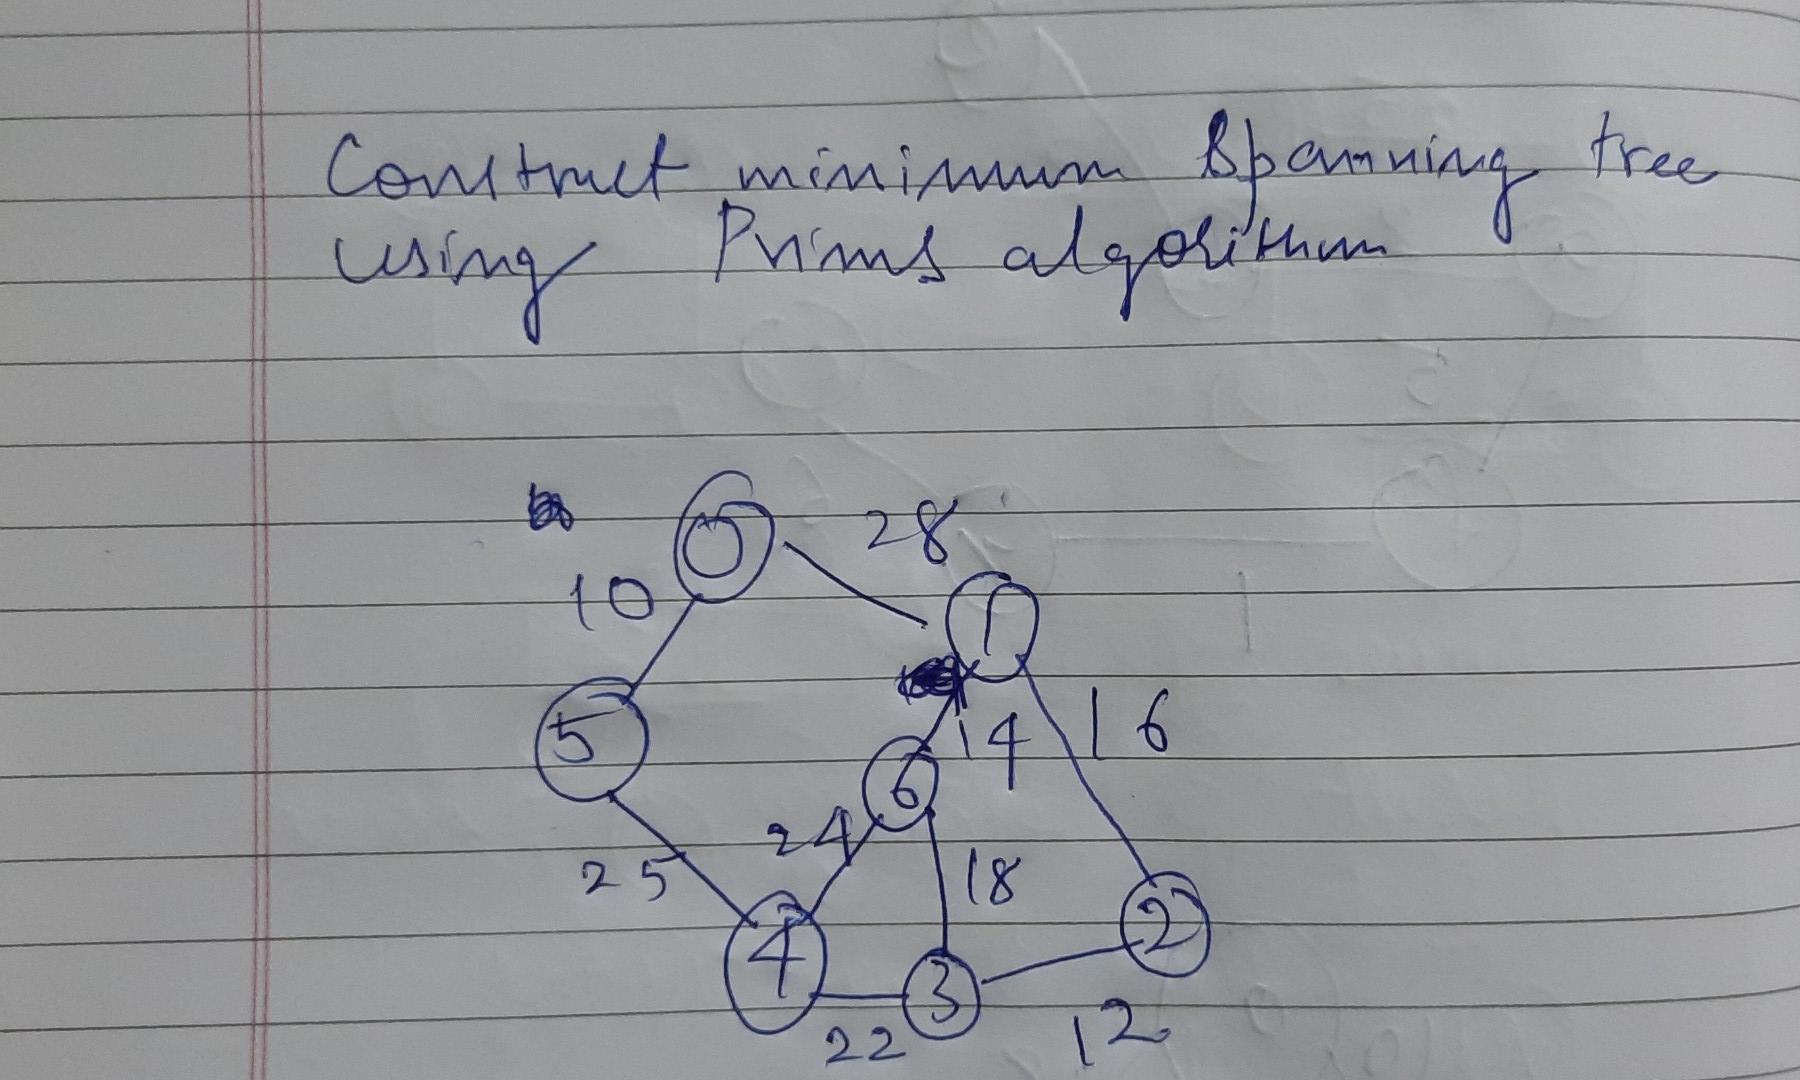 Construct minimum spanning tree
using Prims algorithm
0
28
10
1
5
14
16
6
24
18
25
2
4
3
12
22